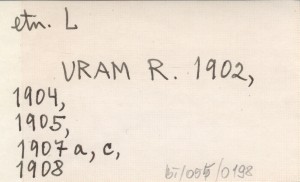 etn. L
URAM R. 1902,
1904,
1905,
1907 a, c,
1908
bi/095/0198